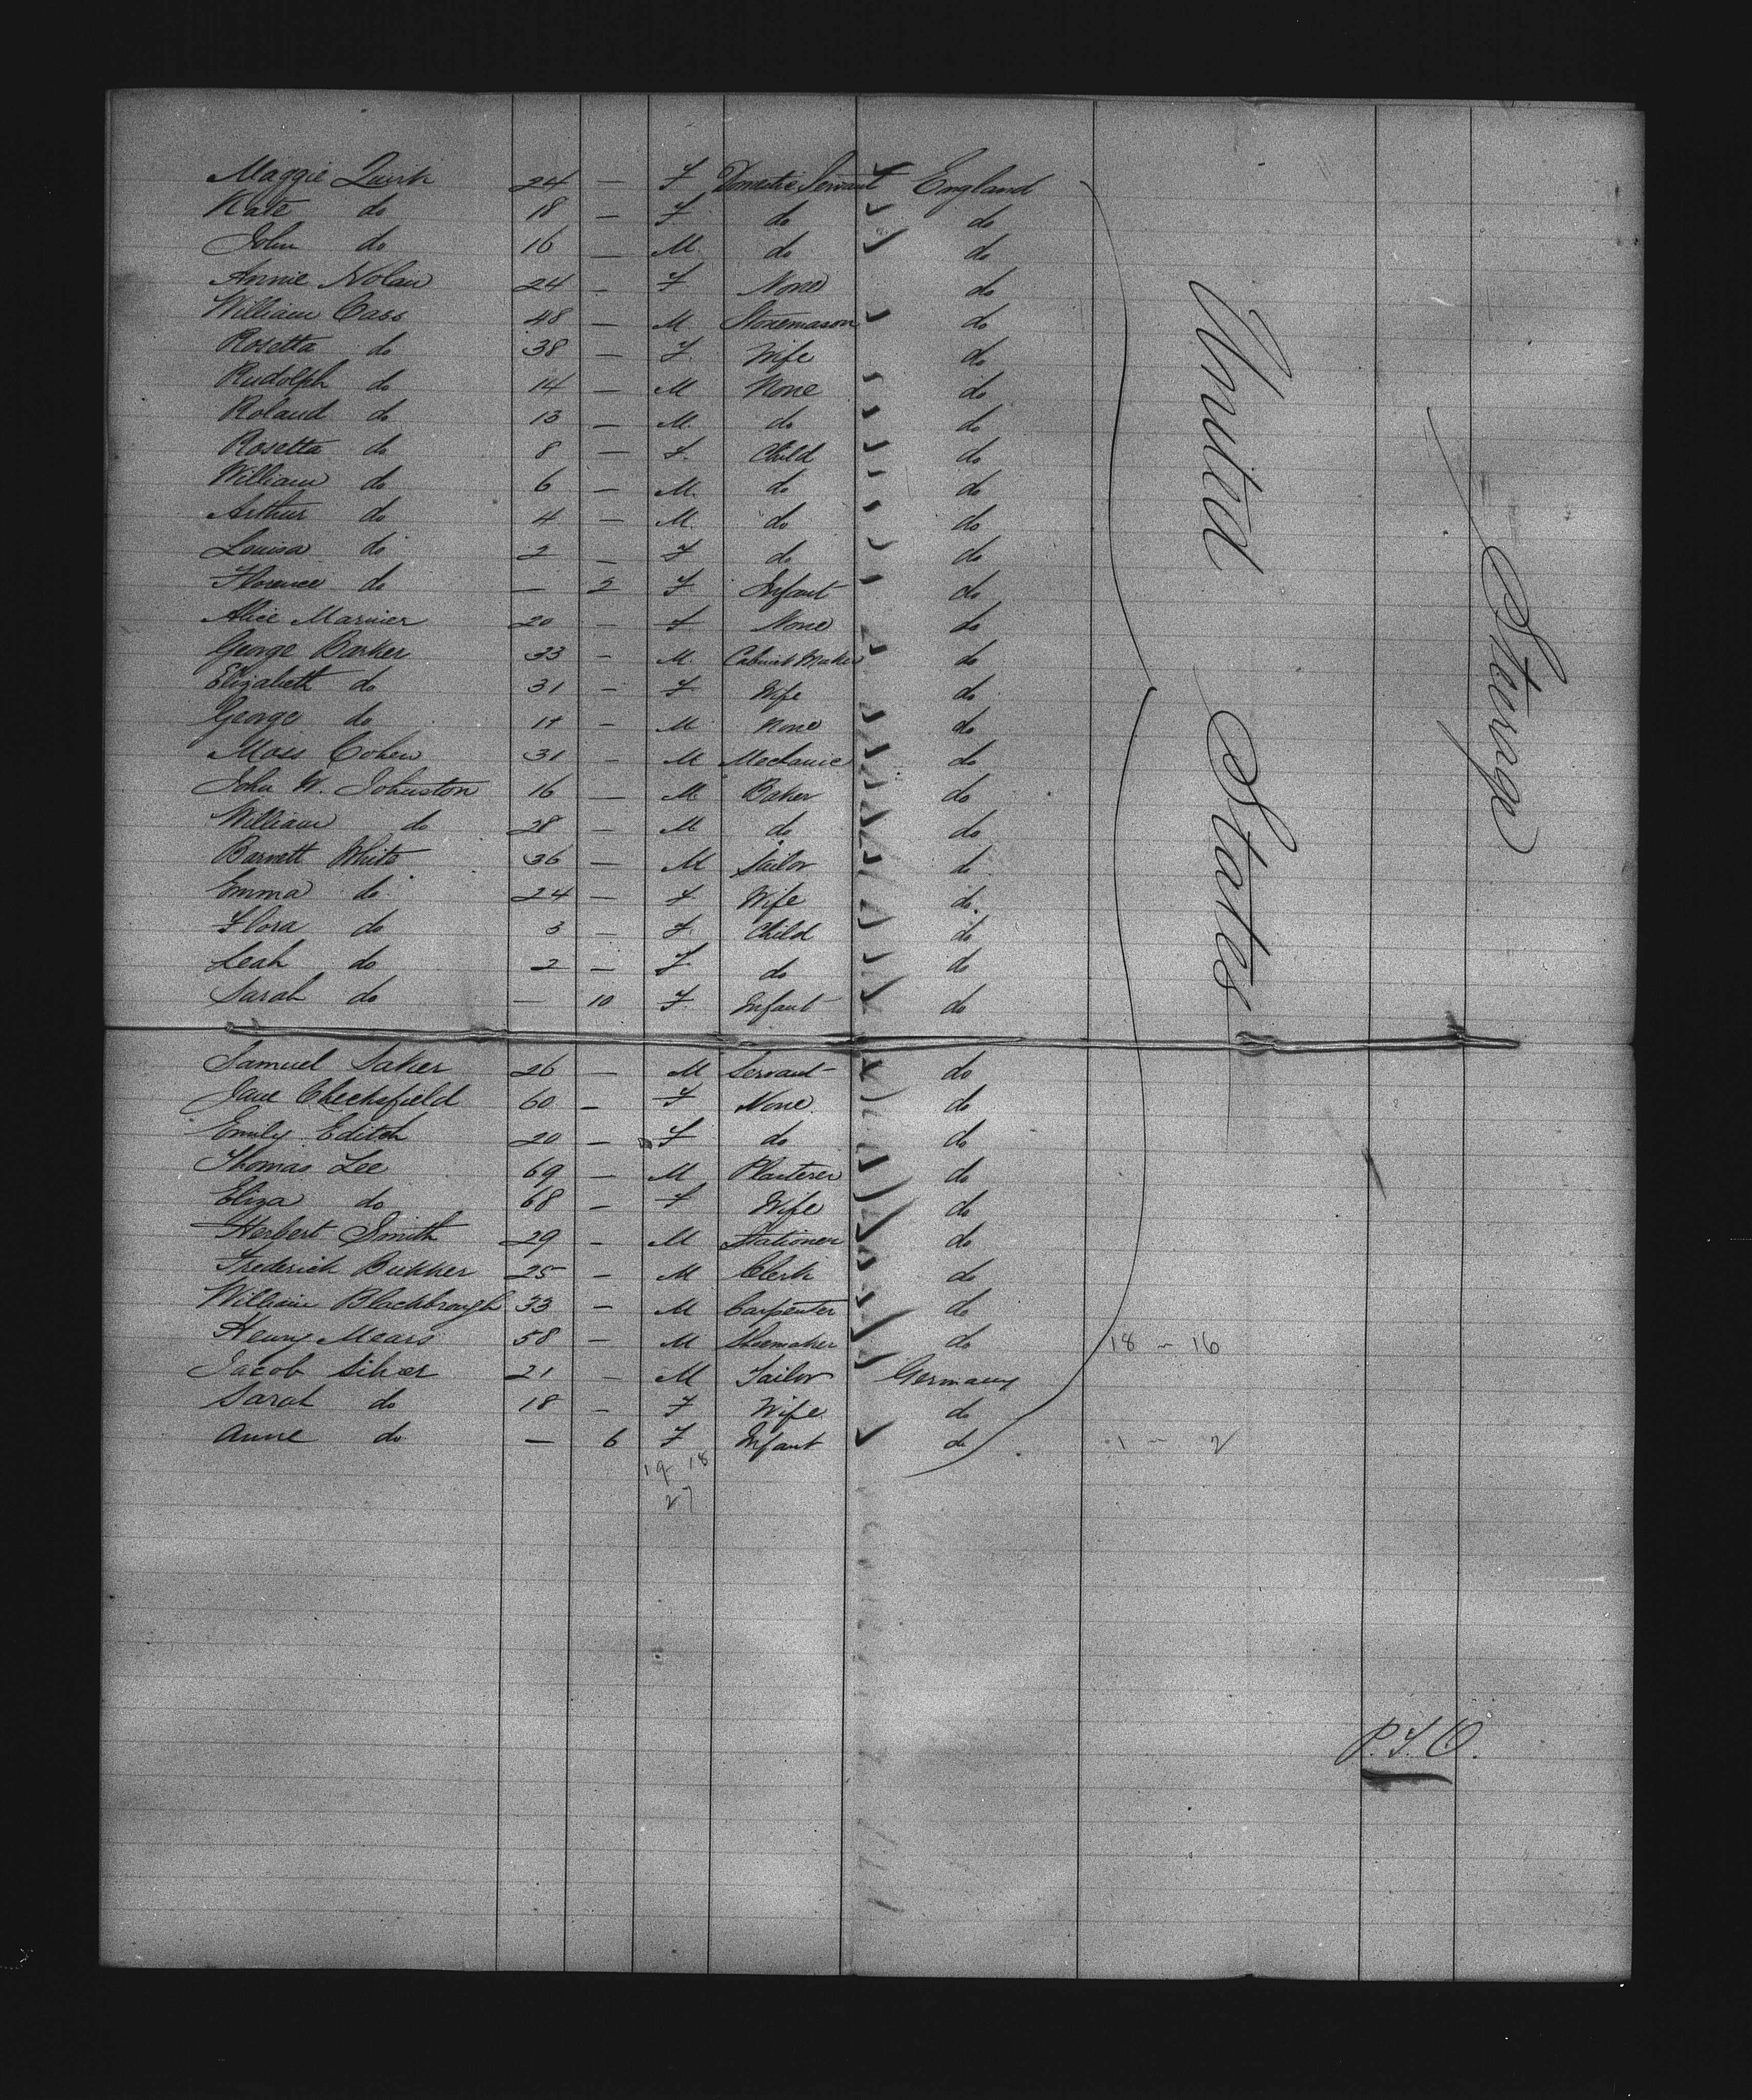 Maggie Quirk 24 — F Domestic Servant England
Kate do 18 — F do do
John do 16 — M. do do
Annie Nolan 24 — F None do
William Cass 48 — M. Stonemason do
Rosetta do 38 — F. Wife do
Rudolph do 14 — M None do
Roland do 13 — M. do do
Rosetta do 8 — F. Child do
William do 6 — M. do do
Arthur do 4 — M. do do
Louisa do 2 — F do do
Florence do — 2 F. Infant do
Alice Marnier 20 — F. None do
George Barker 33 — M. Cabinet Maker do
Elizabeth do 31 — F Wife do
George do 11 — M None do
Moss Cohen 31 — M Mechanic do
John W. Johnston 16 — M Baker do
William do 28 — M do do
Barnett White 36 — M Tailor do
Emma do 24 — F. Wife do
Flora do 3 — F. Child do
Leah do 2 — F. do do
Sarah do — 10 F. Infant do
Samuel Saker 26 — M Servant do
Jane Checksfield 60 — F None do
Emily Editch 20 — F do do
Thomas Lee 69 — M Plasterer do
Eliza do 68 — F Wife do
Herbert Smith 29 — M Stationer do
Frederick Bukker 25 — M Clerk do
William Blackbrough 33 — M Carpenter do
Henry Mears 58 — M Shoemaker do 18 – 16
Jacob Silver 21 — M Tailor Germany
Sarah do 18 — F Wife do
Anne do — 6 F Infant do 1 – 2
19 18
27
United States
Steerage
P.T.O.